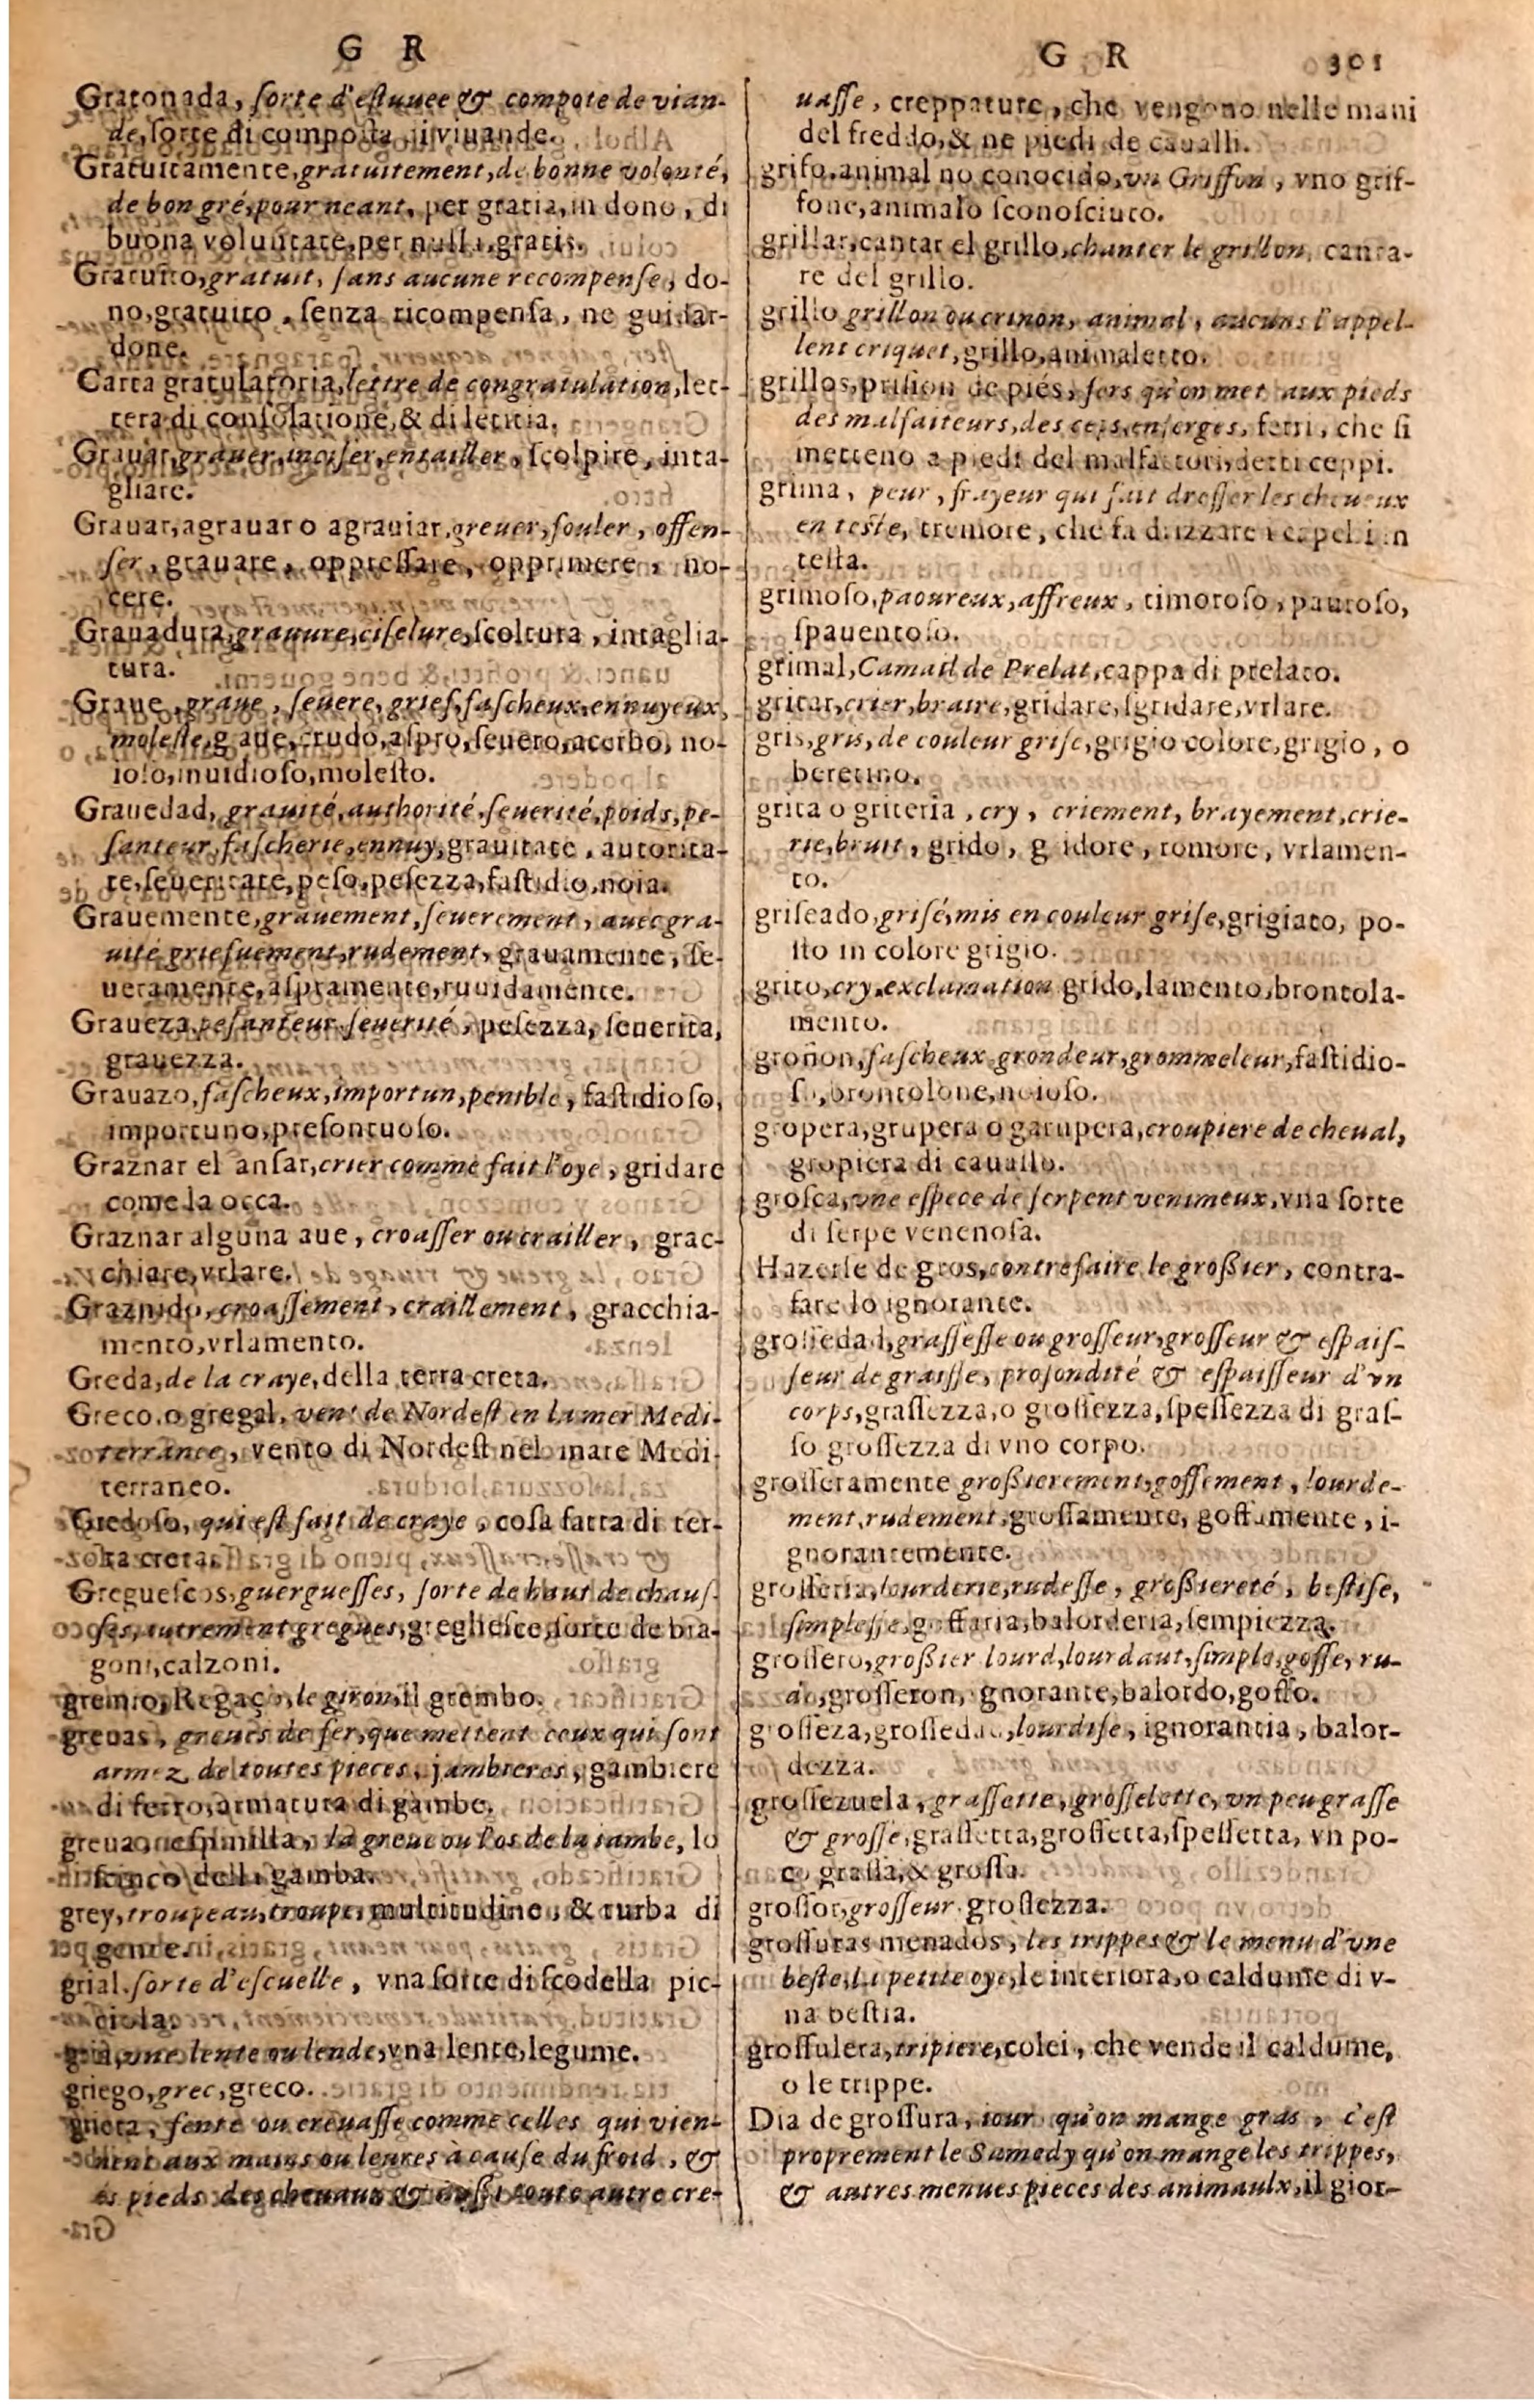 G R
Gratonada, ſorte d'eſtuuee & compote de vian-
de, ſorte di compoſta di viuande.
Gratuitamente, gratuitement, de bonne volonté,
de bon gré, pour neant, per gratia, in dono, di
buona voluntate, per nulla, gratis.
Gratuito, gratuit, ſans aucune recompenſe, do-
no, gratuito, ſenza ricompenſa, ne guidar-
done.
Carta gratulatoria, lettre de congratulation, let-
tera di conſolatione, & di letitia.
Grauar, grauer, inciſer, entailler, ſcolpire, inta-
gliare.
Grauar, agrauar o agrauiar, greuer, fouler, offen-
ſer, grauare, oppreſſare, opprimere, no-
cere.
Grauadura, grauure, ciſelure, ſcoltura, intaglia-
tura.
Graue, graue, ſeuere, grief, faſcheux, ennuyeux,
moleſte, graue, crudo, aſpro, ſeuero, acerbo, no-
ioſo, inuidioſo, moleſto.
Grauedad, grauité, authorité, ſeuerité, poids, pe-
ſanteur, faſcherie, ennuy, grauitate, autorita-
te, ſeueritate, peſo, peſezza, faſtidio, noia.
Grauemente, grauement, ſeuerement, auec gra-
uité griefuement, rudement, grauamente, ſe-
ueramente, aſpramente, ruuidamente.
Graueza, peſanteur, ſeuerité, peſezza, ſeuerita,
grauezza.
Grauazo, faſcheux, importun, penible, faſtidioſo,
importuno, preſontuoſo.
Graznar el anſar, crier comme fait l'oye, gridare
come la occa.
Graznar alguna aue, croaſſer ou crailler, grac-
chiare, vrlare.
Graznido, croaſſement, craillement, gracchia-
mento, vrlamento.
Greda, de la craye, della terra creta.
Greco, o gregal, vent de Nordeſt en la mer Medi-
terranee, vento di Nordeſt nel mare Medi-
terraneo.
Gredoſo, qui eſt fait de craye, coſa fatta di ter-
ra creta.
Greguescos, guergueſſes, ſorte de haut de chauſ-
ſes, autrement gregues, greghesce, ſorte de bra-
goni, calzoni.
gremio, Regaço, le giron, il grembo.
greuas, greues de fer, que mettent ceux qui ſont
armez de toutes pieces, jambieres, gambiere
di ferro, armatura di gambe.
greua, o eſpinilla, la greue ou l'os de la iambe, lo
ſtinco della gamba.
grey, troupeau, troupe, multitudine, & turba di
gente.
grial, ſorte d'eſcuelle, vna ſorte di ſcodella pic-
ciola.
vne lente ou lende, vna lente, legume.
griego, grec, greco.
grieta, fente ou creuaſſe comme celles qui vien-
nent aux mains ou leures à cauſe du froid, &
és pieds des cheuaux & auſſi toute autre cre-
G R 301
uaſſe, creppature, che vengono nelle mani
del freddo, & ne piedi de caualli.
grifo, animal no conocido, vn Griffon, vno grif-
fone, animalo ſconoſciuto.
grillar, cantar el grillo, chanter le grillon, canta-
re del grillo.
grillo grillon ou crinon, animal, aucuns l'appel-
lent criquet, grillo, animaletto.
grillos, priſion de piés, fers qu'on met aux pieds
des malfaiteurs, des ceps, enferges, ferri, che ſi
metteno a piedi del malfattori, detti ceppi.
grima, peur, frayeur qui fait dreſſer les cheueux
en teſte, tremore, che fa drizzare i capelli in
teſta.
grimoſo, paoureux, affreux, timoroſo, pauroſo,
ſpauentoſo.
grimal, Camail de Prelat, cappa di prelato.
gritar, crier, braire, gridare, ſgridare, vrlare.
gris, gris, de couleur griſe, grigio colore, grigio, o
beretino.
grita o griteria, cry, criement, brayement, crie-
rie, bruit, grido, gridore, romore, vrlamen-
to.
griſeado, griſé, mis en couleur griſe, grigiato, po-
ſto in colore grigio.
grito, cry, exclamation grido, lamento, brontola-
mento.
groñon, faſcheux, grondeur, grommeleur, faſtidio-
ſo, brontolone, noioſo.
gropera, grupera o garupera, croupiere de cheual,
gropiera di cauallo.
groſca, vne eſpece de ſerpent venimeux, vna ſorte
di ſerpe venenoſa.
Hazerſe de gros, contrefaire le großier, contra-
fare lo ignorante.
groſſedad, graſſeſſe ou groſſeur, groſſeur & eſpaiſ-
ſeur de graiſſe, profondité & eſpaiſſeur d'vn
corps, graſſezza, o groſſezza, ſpeſſezza di graſ-
ſo groſſezza di vno corpo.
groſſeramente großierement, goffement, lourde-
ment, rudement, groſſamente, goffamente, i-
gnorantemente.
groſſeria, lourderie, rudeſſe, großiereté, beſtiſe,
ſimpleſſe, goffaria, balorderia, ſempiezza.
groſſero, großier lourd, lourdaut, ſimple, goffe, ru-
de, groſſeron, ignorante, balordo, goffo.
groſſeza, groſſedad, lourdiſe, ignorantia, balor-
dezza.
groſſezuela, graſſette, groſſelette, vn peu graſſe
& groſſe, graſſetta, groſſetta, ſpeſſetta, vn po-
co graſſa, & groſſa.
groſſor, groſſeur, groſſezza.
groſſuras menados, les trippes & le menu d'vne
beſte, la petite oye, le interiora, o caldume di v-
na beſtia.
groſſulera, tripiere, colei, che vende il caldume,
o le trippe.
Dia de groſſura, iour qu'on mange gras, c'eſt
proprement le Samedy qu'on mange les trippes,
& autres menues pieces des animaulx, il gior-